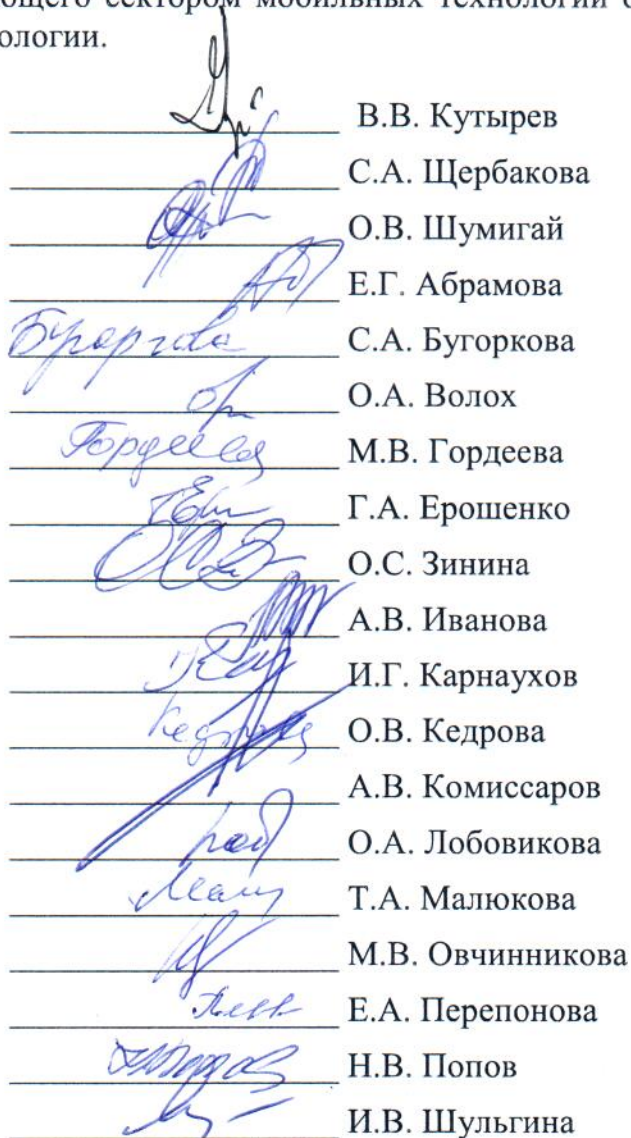 сектором мобильных технологий
ологии.
В.В. Кутырев
С.А. Щербакова
О.В. Шумигай
Е.Г. Абрамова
С.А. Бугоркова
О.А. Волох
Гордеева М.В. Гордеева
Г.А. Ерошенко
О.С. Зинина
А.В. Иванова
И.Г. Карнаухов
О.В. Кедрова
А.В. Комиссаров
О.А. Лобовикова
Т.А. Малюкова
М.В. Овчинникова
Е.А. Перепонова
Н.В. Попов
И.В. Шульгина